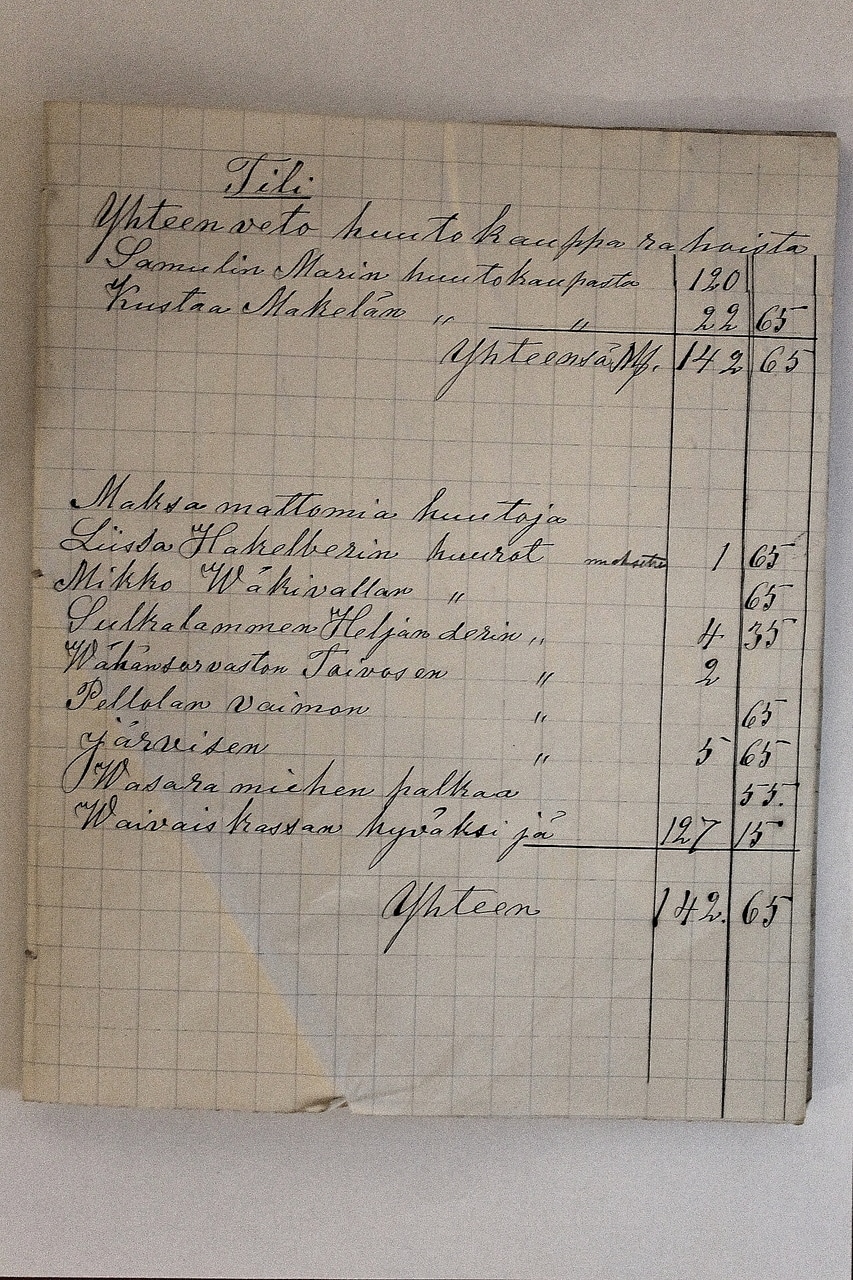 Tili
Yhteenveto huutokauppa rahoista
Samulin Marin huutokaupasta 120
Kustaa Makelän " " 22 65
Yhteensä Mk. 142 65
Maksamattomia huutoja
Liissa Hakelberin huurot maksettu 1 65
Mikko Wäkivallan " 65
Sulkalammen Heljanderin " 4 35
Wähänsorvaston Toivosen " 2
Pellolan vaimon " 65
Järvisen " 5 65
Wasara miehen palkaa 55.
Waivaiskassan hyväksi jä 127 15
Yhteen 142. 65